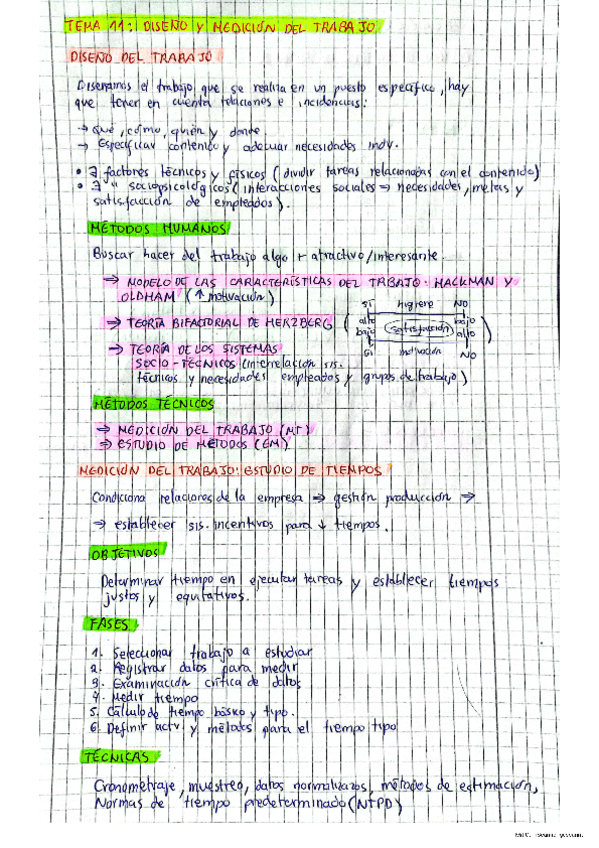 TEMA 11: DISEÑO y MEDICIÓN DEL TRABAJO
DISEÑO DEL TRABAJO
Diseñamos el trabajo que se realiza en un puesto específico, hay
que tener en cuenta relaciones e incidencias:
→ Qué, cómo, quién y donde.
→ Especificar contenido y adecuar necesidades indv.
• ∃ factores técnicos y físicos (dividir tareas relacionadas con el contenido)
• ∃ " sociopsicológicos (interacciones sociales → necesidades, metas y
satisfacción de empleados).
MÉTODOS HUMANOS
Buscar hacer del trabajo algo + atractivo/interesante.
→ MODELO DE LAS CARACTERÍSTICAS DEL TRBAJO. HACKMAN Y
OLDHAM (↑ motivación)
→ TEORÍA BIFACTORIAL DE HERZBERG (
Sí higiene NO
alto bajo
satisfacción
bajo alto
Sí motivación NO
)
→ TEORÍA DE LOS SISTEMAS
SOCIO-TÉCNICOS (interrelación sis.
técnicos y necesidades empleados y grupos de trabajo)
MÉTODOS TÉCNICOS
→ MEDICIÓN DEL TRABAJO (MT)
→ ESTUDIO DE MÉTODOS (EM)
MEDICIÓN DEL TRABAJO: ESTUDIO DE TIEMPOS
Condiciona relaciones de la empresa → gestión producción →
→ establecer sis. incentivos para ↓ tiempos.
OBJETIVOS
Determinar tiempo en ejecutar tareas y establecer tiempos
justos y equitativos.
FASES
1. Seleccionar trabajo a estudiar
2. Registrar datos para medir
3. Examinación crítica de datos
4. Medir tiempo
5. Cálculo de tiempo básico y tipo.
6. Definir actv y métodos para el tiempo tipo
TÉCNICAS
Cronometraje, muestreo, datos normalizados, métodos de estimación,
Normas de tiempo predeterminado (NTPD)